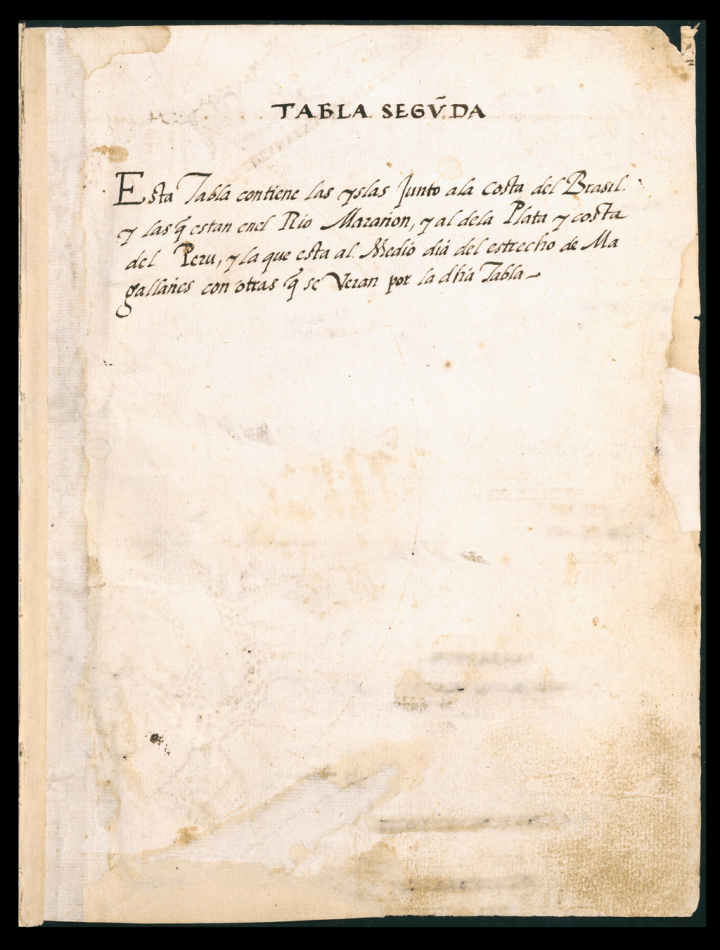 TABLA SEGṼDA
Esta Tabla contiene las yslas Junto ala costa del Brasil.
y las q̃ estan enel Rio Marañon, y al dela Plata y costa
del Peru, y la que esta al Medio dia del estrecho de Ma
gallanes con otras q̃ se Veran por la dha Tabla